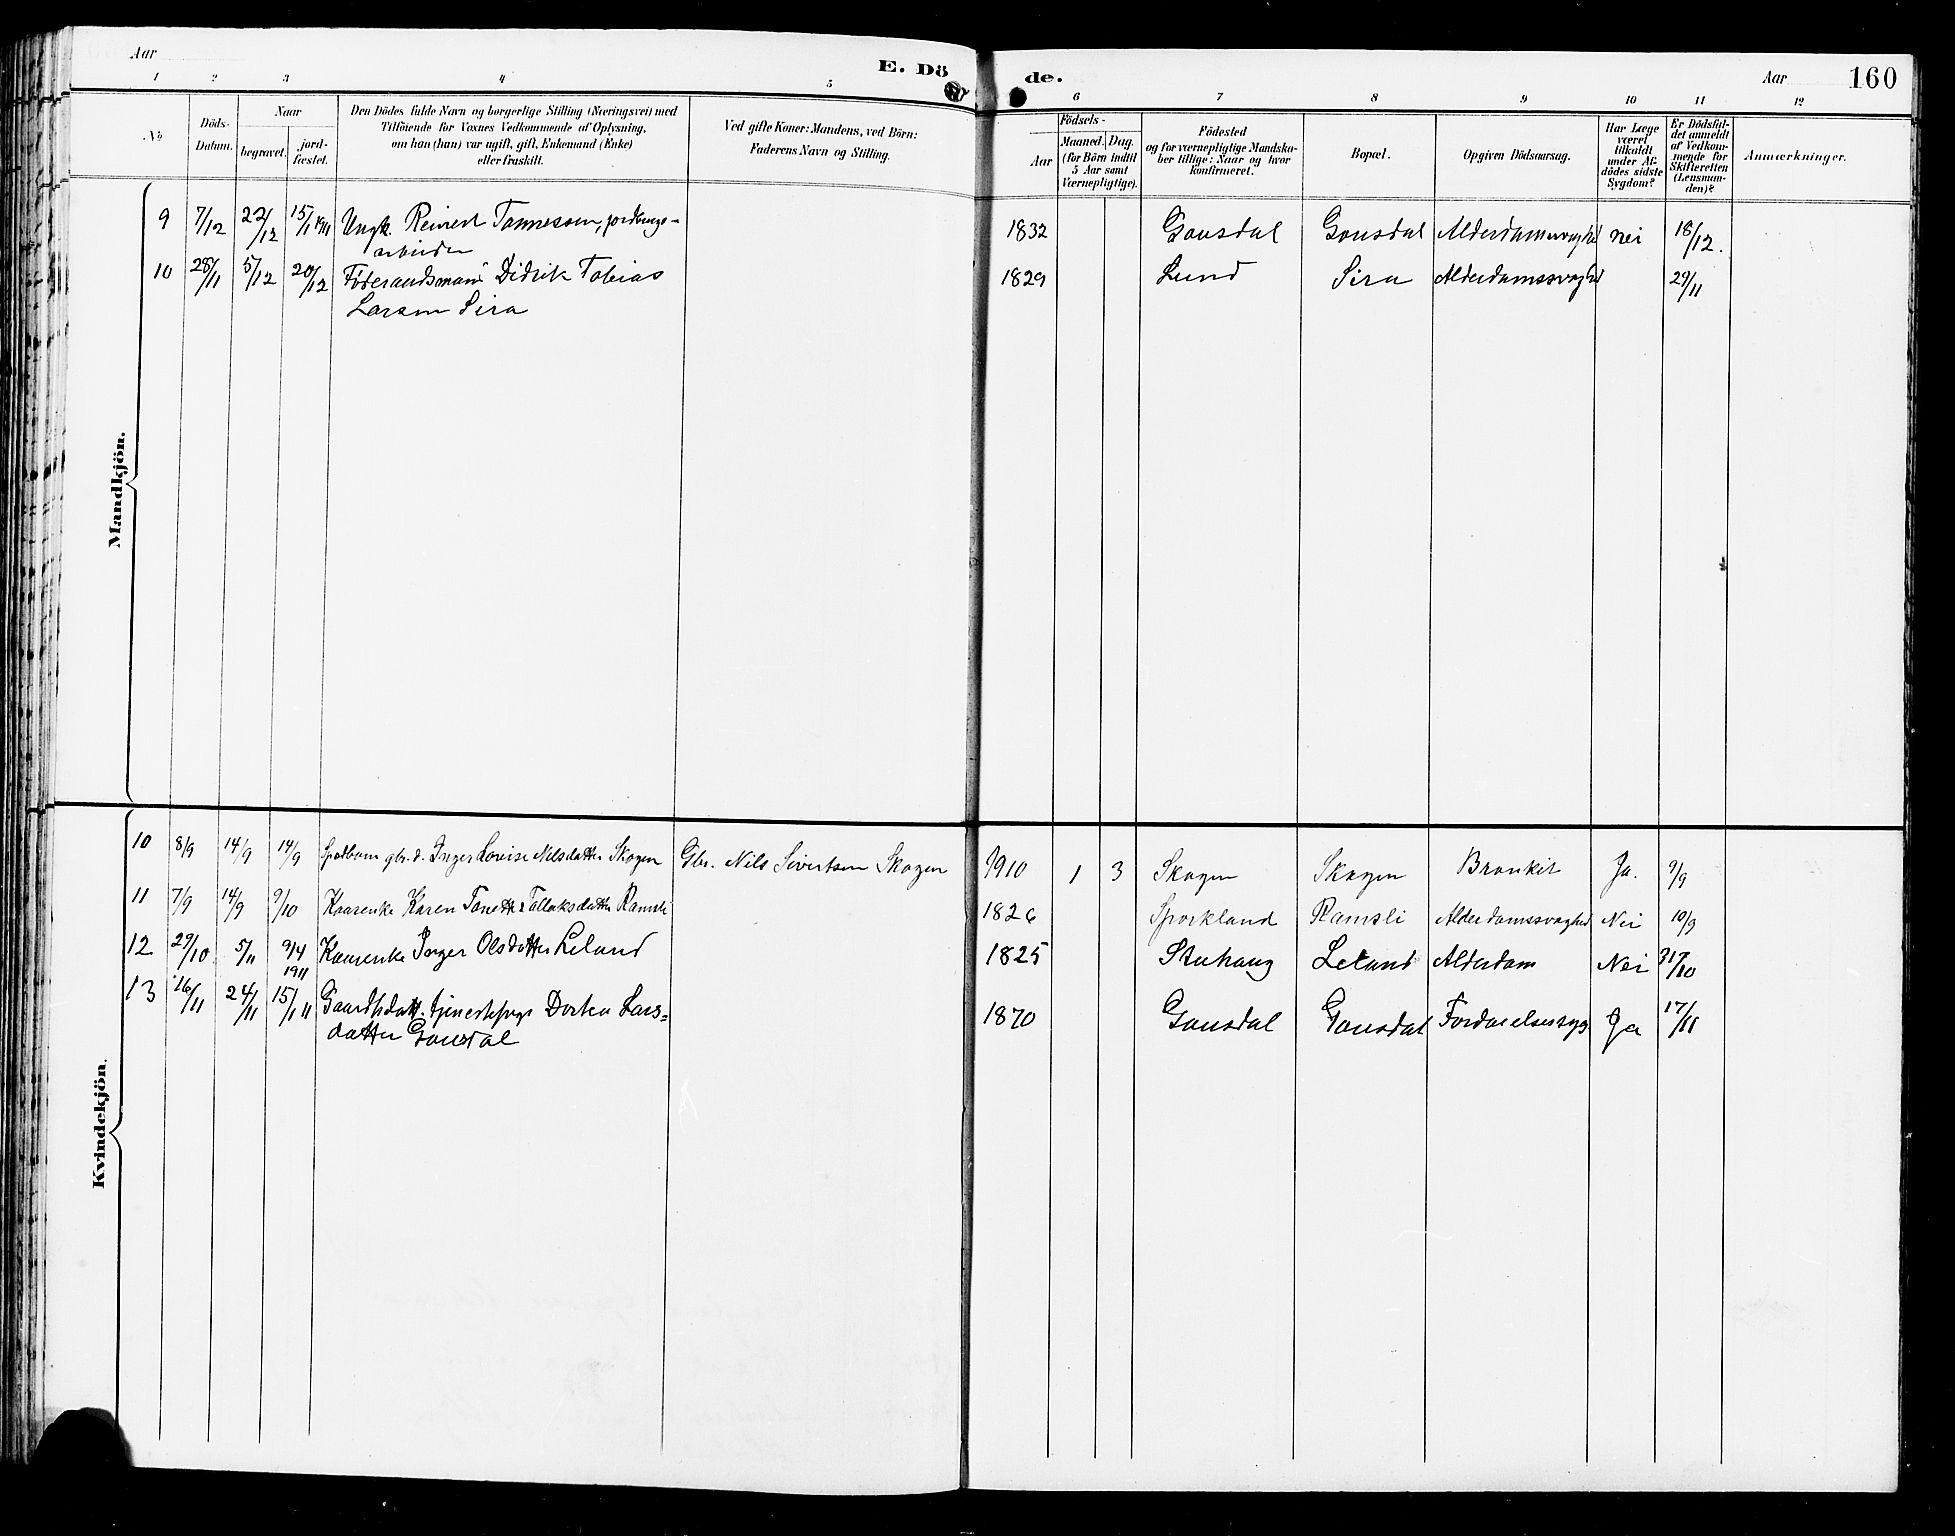 Aar
E. Dö
de.
Aar
160
1 2 3 4 5 6 7 8 9 10 11 12
No
Döds-
Datum.
Naar
begravet.
jord-
fæstet.
Den Dödes fulde Navn og borgerlige Stilling (Næringsvei) med
Tilföiende for Voxnes Vedkommende af Oplysning,
om han (hun) var ugift, gift, Enkemand (Enke)
eller fraskilt.
Ved gifte Koner: Mandens, ved Börn:
Faderens Navn og Stilling.
Födsels-
Aar
Maaned. Dag.
(for Börn indtil
5 Aar samt
Værnepligtige).
Födested
og for værnepligtige Mandska-
ber tillige: Naar og hvor
konfirmeret.
Bopæl.
Opgiven Dödsaarsag.
Har Læge
været
tilkaldt
under Af-
dödes sidste
Sygdom?
Er Dödsfal-
det anmeldt
af Vedkom-
mende for
Skifteretten
(Lensman-
den)?
Anmærkninger.
Mandkjön.
9 7/12 22/12 15/1 1911 Ungk. Reinert Tønnessen, jordbrugs- 1832 Gousdal Gousdal Alderdamssvaghed nei 18/12.
arbeider
10 28/11 5/12 20/12 Føderaadsmand Didrik Tobias 1829 Lund Sira Alderdamssvaghed 29/11
Larsen Sira
Kvindekjön.
10 8/9 14/9 14/9 Spædbarn gbr.d. Inger Lovise Nilsdatter Skogen Gbr. Nils Sivertsen Skogen 1910 1 3 Skogen Skogen Bronkit Ja. 9/9
11 7/9 14/9 9/10 Kaarenke Karen Tonette Tollaksdatter Ramsli 1826 Sporkland Ramsli Alderdamssvaghed Nei 10/9
12 29/10 5/11 9/4 1911 Kaarenke Inger Olsdatter Leland 1825 Stuhaug Leland Alderdam Nei 31/10
13 16/11 24/11 15/1 11 Gaardbdatt. tjenestepige Dortea Lars= 1870 Gousdal Gousdal Fordøielsessyg. Ja 17/11
datter Gousdal